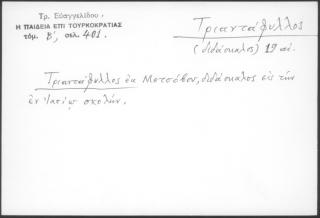 Τρ. Εὐαγγελίδου :
Η ΠΑΙΔΕΙΑ ΕΠΙ ΤΟΥΡΚΟΚΡΑΤΙΑΣ
τόμ. Β', σελ. 401.
Τριαντάφυλλος
(διδάσκαλος) 19 αἰ.
Τριαντάφυλλος ἐκ Μετσόβου, διδάσκαλος εἰς τὴν
ἐν Ἰασίῳ σχολήν.